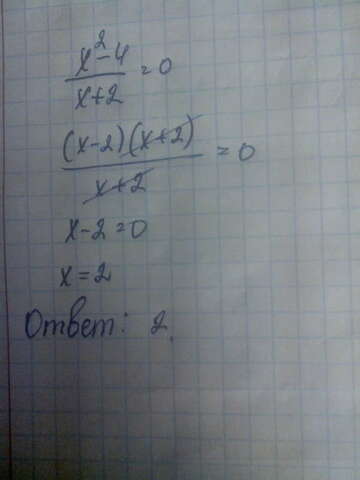 x²-4
x+2 =0
(x-2)(x+2)
x+2 =0
x-2=0
x=2
Ответ: 2.